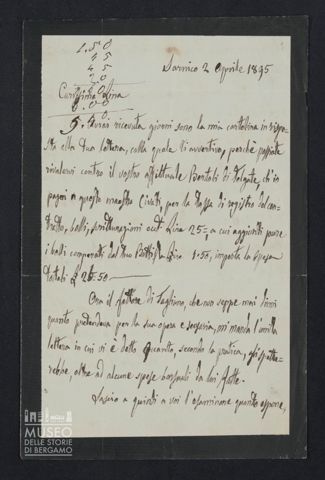 1.50
45
45
20
Sarnico 2 Aprile 1895
Carissima Lina
5. Avrai ricevuta giorni sono la mia cartolina in rispo-
sta alla tua lettera, colla quale ti avvertivo, perchè possiate
rivalervi contro il vostro affittuale Bertoli di Telgate, ch'io
pagai a questo maestro Civati, per la tassa di registro del con-
tratto, bolli, scritturazioni ecc. Lire 25=, a cui aggiunti pure
i bolli comperati dal Lire 1.50, importa la spesa
totale £ 26.50
Ora il fattore di che non seppe mai dirmi
quanto pretendeva per la sua opera e mi manda l'unita
lettera in cui vi è detto quanto, secondo la pratica, gli spette-
rebbe, oltre ad alcune spese borsuali da lui fatte.
Lascio a quindi a voi l'esaminare quanto espone,
MUSEO
DELLE STORIE
DI BERGAMO